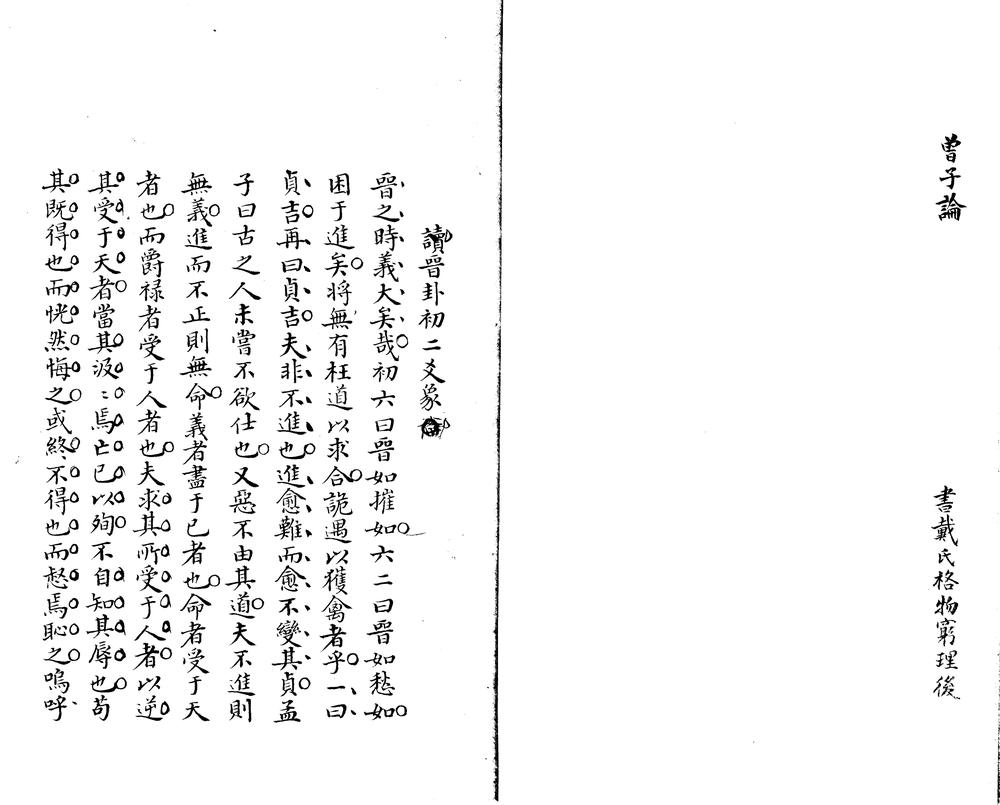 曾子論
書戴氏格物窮理後
讀晉卦初二爻象
晉之時義大矣哉初六曰晉如摧如六二曰晉如愁如
困于進矣將無有枉道以求合詭遇以獲禽者乎一曰
貞吉再曰貞吉夫非不進也進愈難而愈不變其貞孟
子曰古之人未嘗不欲仕也又惡不由其道夫不進則
無義進而不正則無命義者盡于已者也命者受于天
者也而爵祿者受于人者也夫求其所受于人者以逆
其受于天者當其汲〻焉亡已以殉不自知其辱也苟
其既得也而恍然悔之或終不得也而惄焉恥之嗚呼